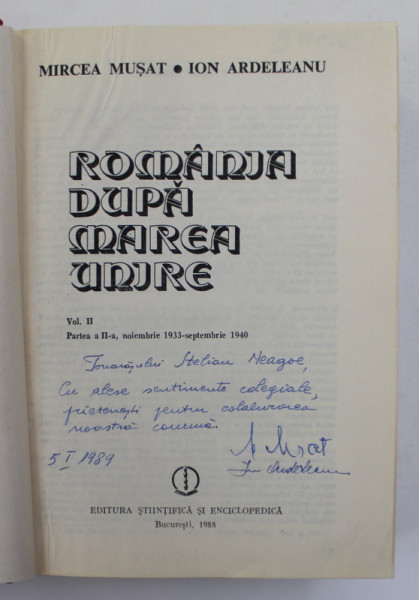 MIRCEA MUȘAT • ION ARDELEANU
ROMÂNIA
DUPĂ
MAREA
UNIRE
Vol. II
Partea a II-a, noiembrie 1933-septembrie 1940
Tovarășului Stelian Neagoe,
Cu alese sentimente colegiale,
prietenești pentru colaborarea
noastră comună.
M Mușat
5 I 1989
Ion Ardeleanu
EDITURA ȘTIINȚIFICĂ ȘI ENCICLOPEDICĂ
București, 1988